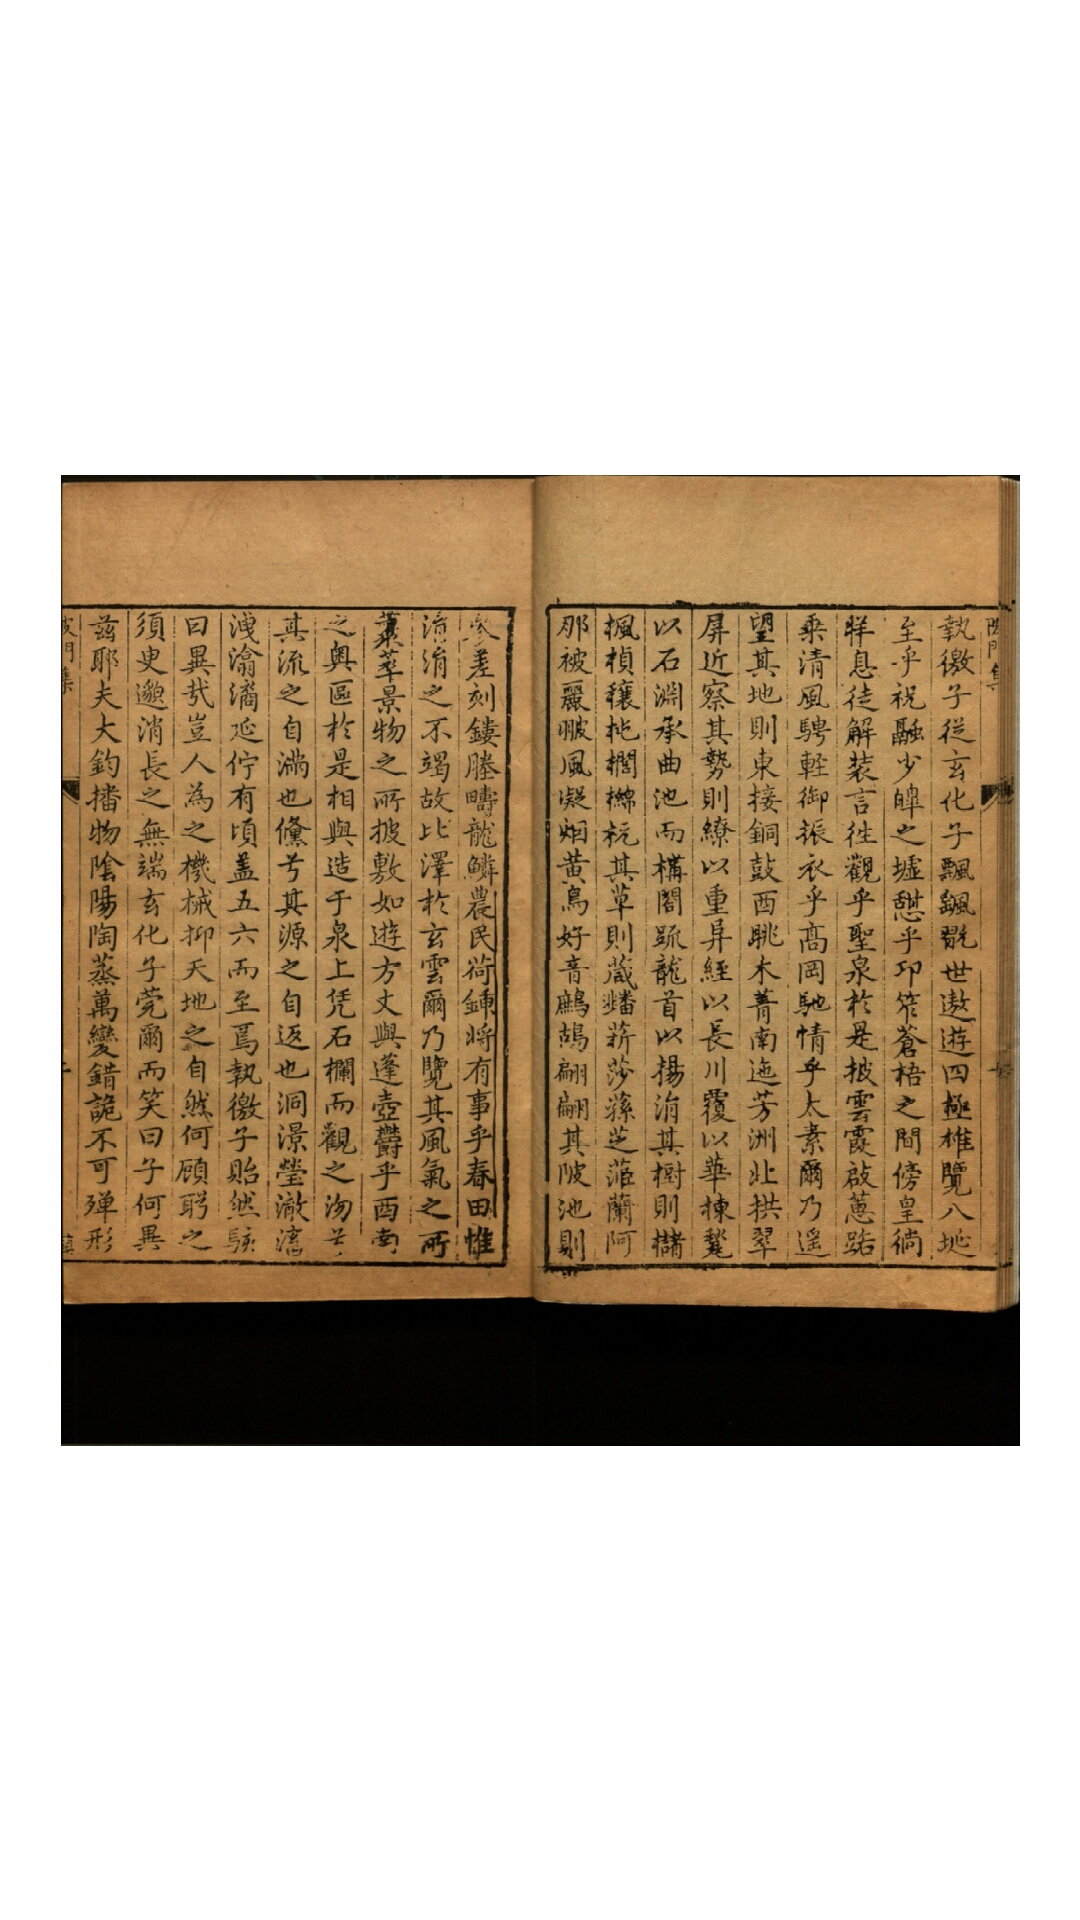 執徼子從玄化子飄颻翫世遨遊四極椎覽八埏
至乎祝融少皥之墟憇乎邛笮蒼梧之間傍皇徜
徉息徒解装言徃觀乎聖泉於是披雲霞啟蕙路
乗清風騁輕御振衣乎高岡馳情乎太素爾乃遥
望其地則東接銅鼓西眺木菁南迤芳洲北拱翠
屏近察其勢則繚以重屏經以長川覆以華棟甃
以石淵承曲池而構閣疏龍首以揚涓其樹則櫧
楓楨穰杝櫚櫋杬其草則葴蟠菥莎蓀芝菹蘭阿
那被麗眇風凝烟黄鳥好音鷓鴣翩翩其陂池則
參差刻鏤塍疇龍鱗農民荷鍤将有事乎春田惟
流涓之不竭故比澤於玄雲爾乃覽其風氣之所
叢萃景物之所披敷如遊方丈與蓬壺欝乎西南
之奥區於是相與造于泉上凭石欄而觀之沕兮
其流之自滿也儻兮其源之自返也洞澋瑩澈濇
洩潝潏延佇有頃盖五六而至焉執徼子貽然駭
曰異㢤豈人為之機械抑天地之自然何頋眄之
須吏邈消長之無端玄化子莞爾而笑曰子何異
兹耶夫大鈞播物陰陽陶蒸萬變錯詭不可殫形